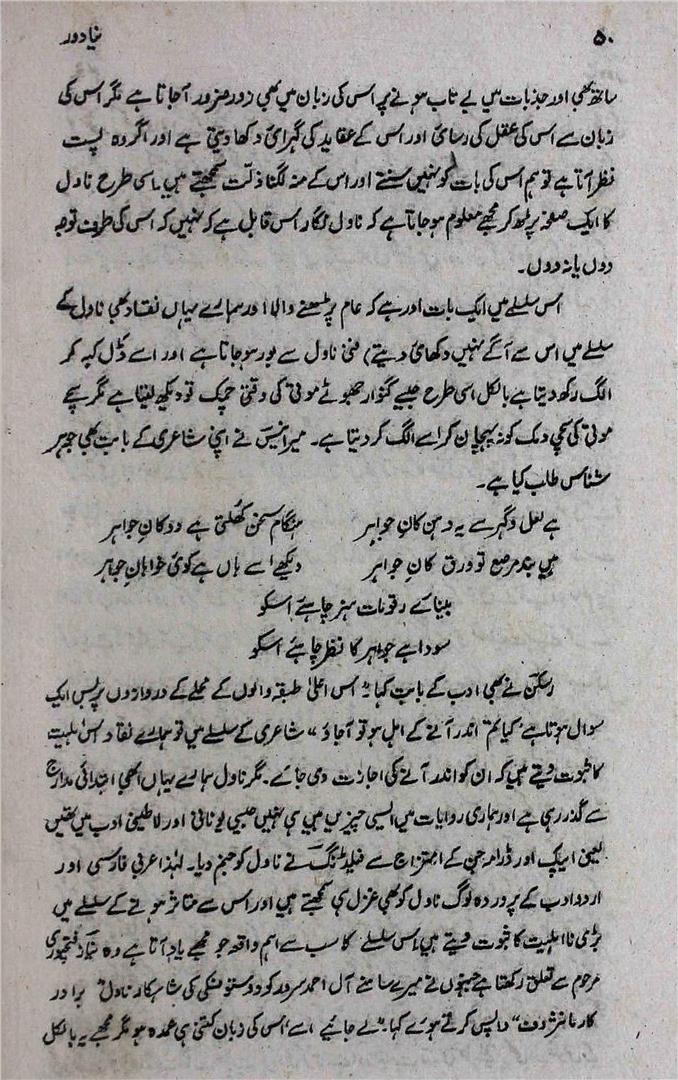 ۵۰
نیا دور
ساتھ بھی اور جذبات میں بے تاب ہونے پر اس کی زبان میں بھی زور ضرور آجاتا ہے مگر اس کی
زبان سے اس کی عقل کی رسائی اور اس کے عقاید کی گہرائی دکھا دیتی ہے اور اگر وہ پست
نظر آتا ہے تو ہم اس کی بات کو نہیں سنتے اور اس کے منہ لگنا ذلت سمجھتے ہیں۔ اسی طرح ناول
کا ایک صفحہ پڑھ کر مجھے معلوم ہوجاتا ہے کہ ناول نگار اس قابل ہے کہ نہیں کہ اس کی طرف توجہ
دوں یا نہ دوں۔
اس سلسلے میں ایک بات اور ہے کہ عام پڑھنے والا (اور ہمارے یہاں نقاد بھی ناول کے
سلسلے میں اس سے آگے نہیں دکھائی دیتے) فنی ناول سے بور ہوجاتا ہے اور اسے ڈل کہہ کر
الگ رکھ دیتا ہے بالکل اسی طرح جیسے گنوار جھوٹے موتی کی وقتی چمک تو دیکھ لیتا ہے مگر سچے
موتی کی سچی دمک کو نہ پہچان کر اسے الگ کر دیتا ہے۔ میر انیس نے اپنی شاعری کے بابت بھی جوہر
شناس طلب کیا ہے۔
ہے لعل و گہر سے یہ دہن کانِ جواہر
ہنگام سخن کھلتی ہے دوکانِ جواہر
ہیں بند مرصع تو ورق کانِ جواہر
دیکھے اسے ہاں ہے کوئی خواہانِ جواہر
بینائے رقومات ہنر چاہئے اسکو
سودا ہے جواہر کا نظر چاہئے اسکو
رسکن نے بھی ادب کے بابت کہا "اس اعلیٰ طبقہ والوں کے محلے کے دروازوں پر بس ایک
سوال ہوتا ہے کیا تم اندر آنے کے اہل ہو تو آجاؤ" شاعری کے سلسلے میں تو ہمارے نقاد اس اہلیت
کا ثبوت دیتے ہیں کہ ان کو اندر آنے کی اجازت دی جائے۔ مگر ناول ہمارے یہاں ابھی ابتدائی مدارج
سے گذر رہی ہے اور ہماری روایات میں ایسی چیزیں ہیں ہی نہیں جیسی یونانی اور لاطینی ادب میں تھیں
یعنی ایپک اور ڈرامہ جن کے امتزاج سے فیلڈنگ نے ناول کو جنم دیا۔ لہٰذا عربی فارسی اور
اردو ادب کے پروردہ لوگ ناول کو بھی غزل ہی سمجھتے ہیں اور اس سے متاثر ہونے کے سلسلے میں
بڑی نااہلیت کا ثبوت دیتے ہیں۔ اس سلسلے کا سب سے اہم واقعہ جو مجھے یاد آتا ہے وہ نیاز فتحپوری
مرحوم سے تعلق رکھتا ہے جنہوں نے میرے سامنے آل احمد سرور کو دوستوئفسکی کی شاہکار ناول "برادر
کارمازوف" واپس کرتے ہوئے کہا۔ "لے جائیے اسے، اس کی زبان کتنی ہی عمدہ ہو مگر مجھے یہ بالکل